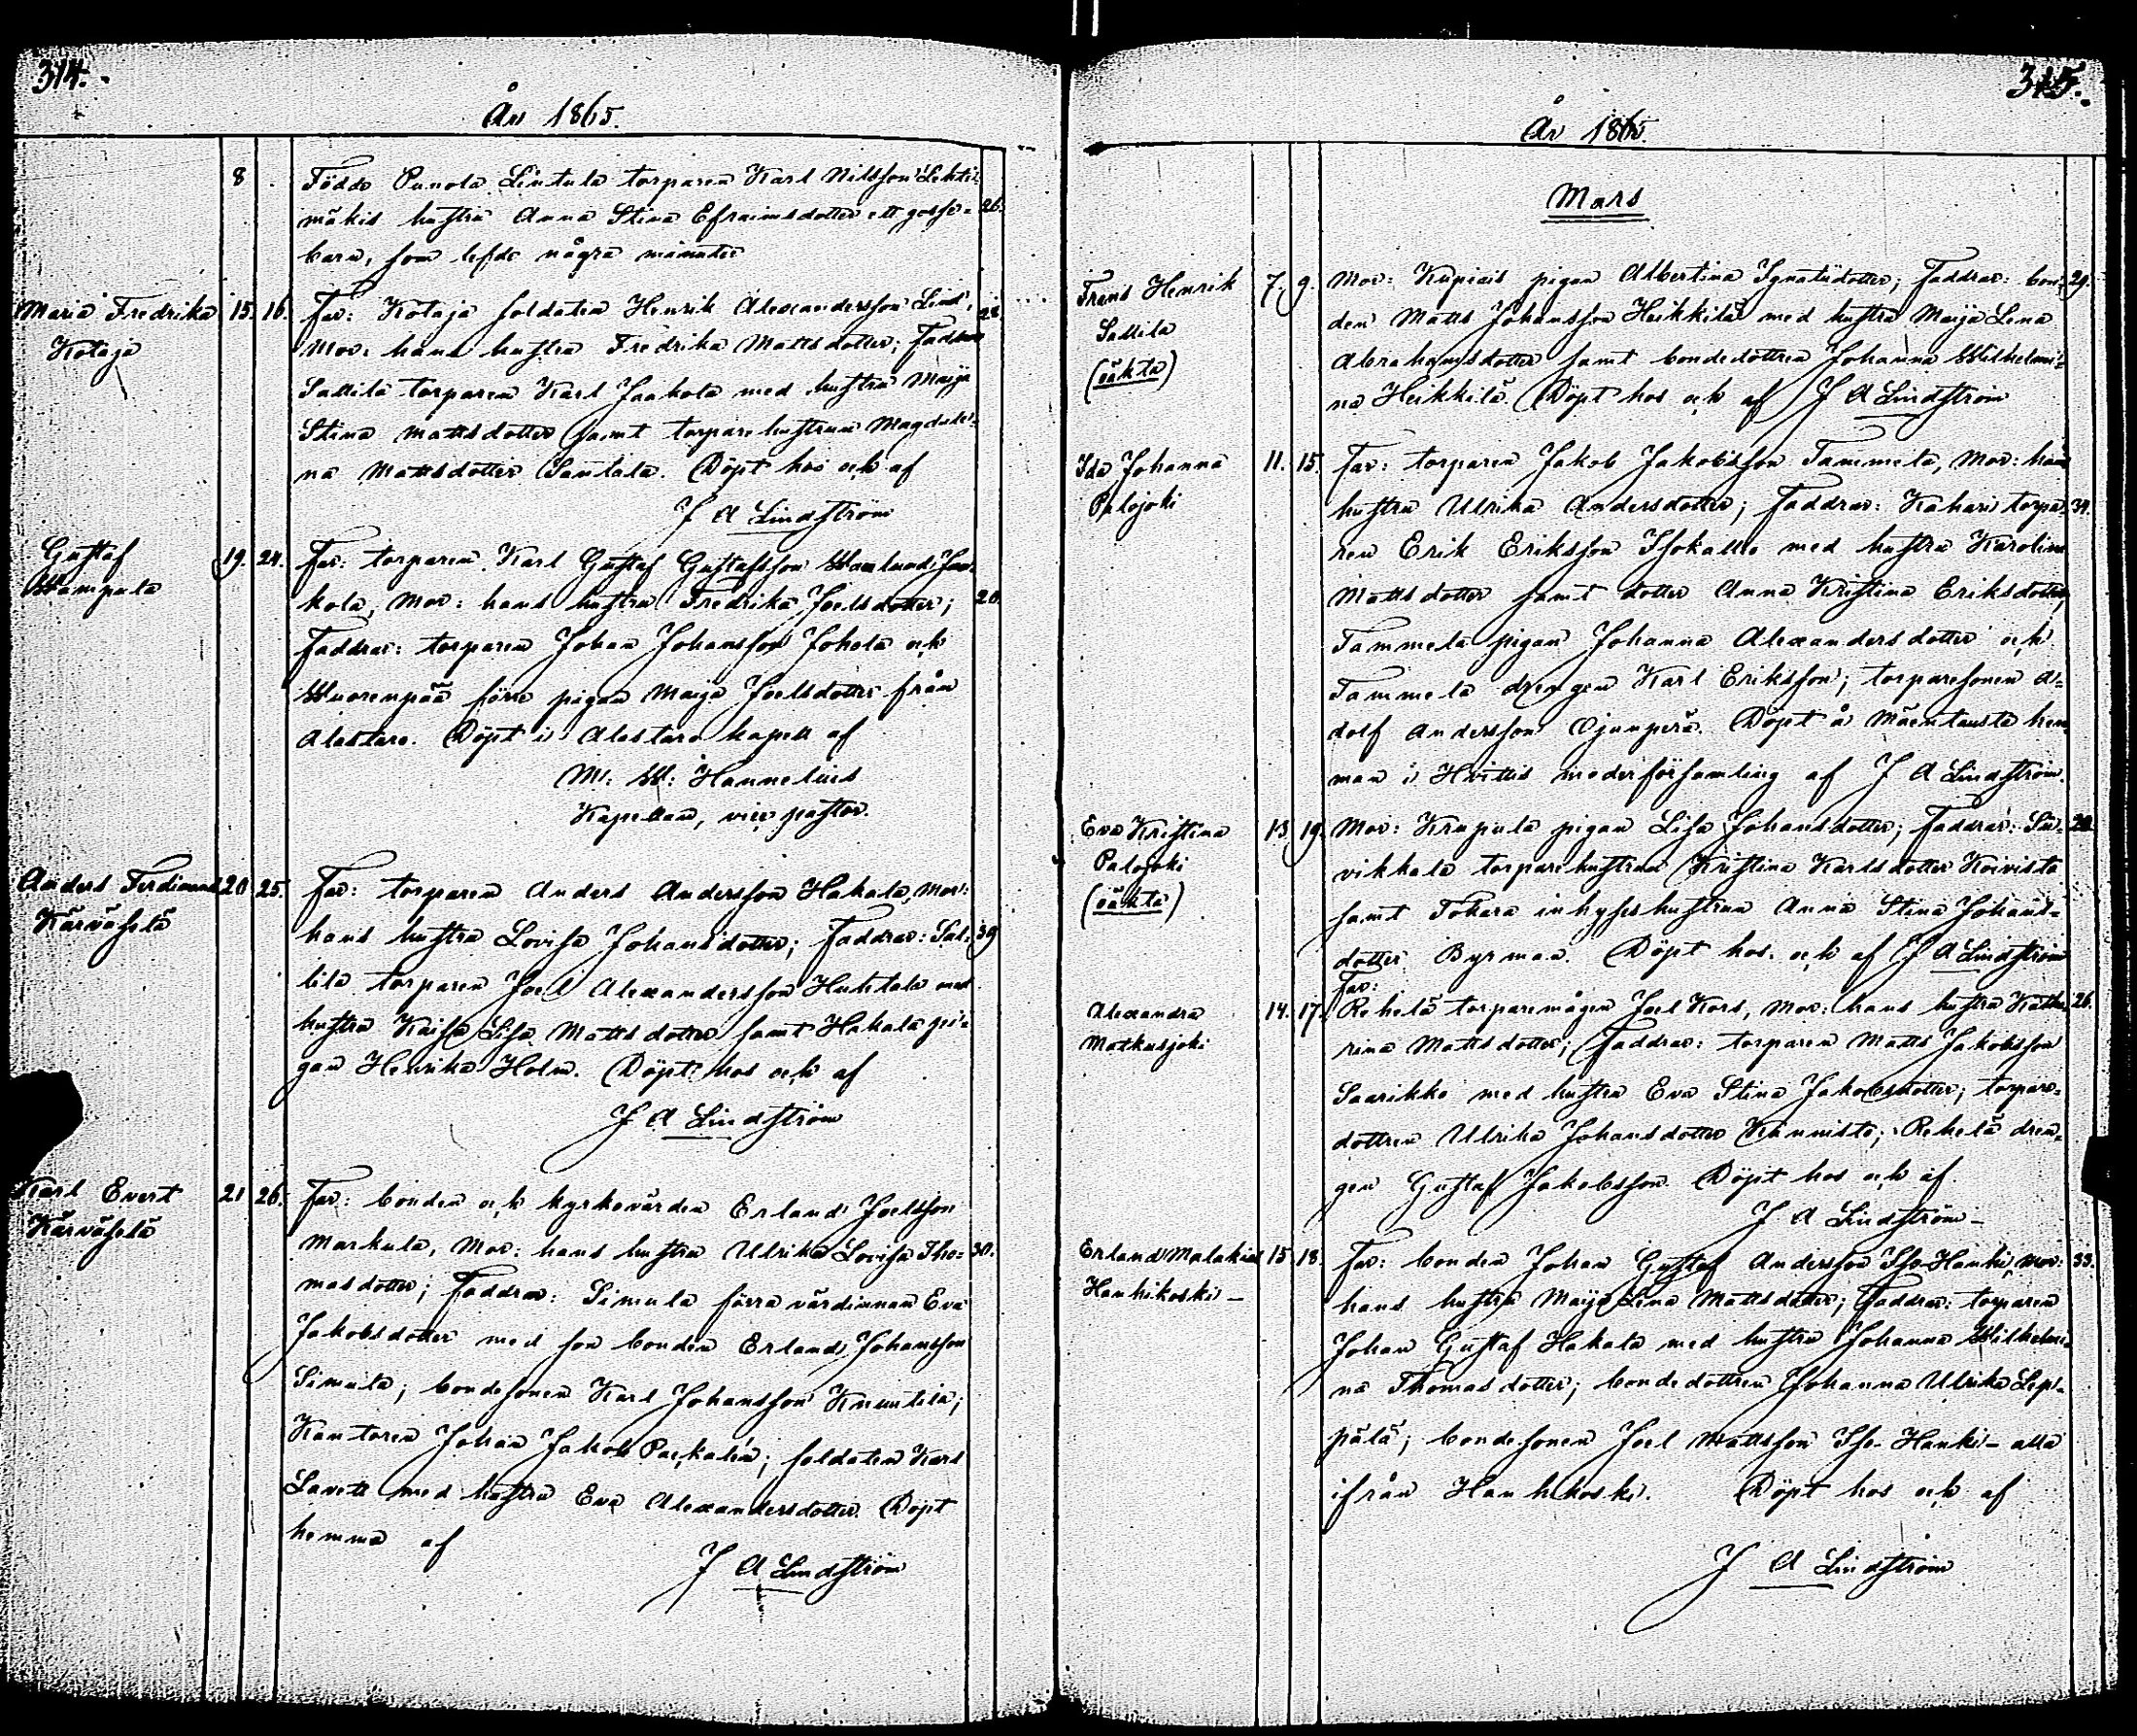 314.
År 1865.
8 . Födde Punola Lintula torparen Karl Nilsson Lehti-
mäkis hustru Anna Stina Efraimsdotter ett gosse- 26.
barn, som lefde några minuter
Maria Fredrika 15. 16. Far: Kotaja soldaten Henrik Alexandersson Lind, 28.
Kotaja Mor: hans hustru Fredrika Mattsdotter; Faddrar
Sallila torparen Karl Jaakola med hustru Maija
Stina Mattsdotter samt torpare hustrun Magdale-
na Mattsdotter Santala. Döpt hos och af
J A Lindström
Gustaf 19. 24. Far: torparen Karl Gustaf Gustafsson
Wampula kola, Mor: hans hustru Fredrika Joelsdotter; 20.
Faddrar: torparen Johan Johansson Johola och
Wuorenpää förre pigan Maija Joelsdotter från
Alastaro. Döpt i Alastaro kapell af
M: W: Hannelius
Kapellan, vice pastor.
Anders Ferdinand 20 25. Far: torparen Anders Andersson Hakala, Mor:
Kärväselä hans hustru Lovisa Johansdotter; Faddrar: Sal- 39
lila torparen Joel Alexandersson Huhtala med
hustru Kaisa Lisa Mattsdotter samt Hakala pi-
gan Henrika Holm. Döpt hos och af
J A Lindström
Karl Evert 21 26. Far: bonden och kyrkovärden Erland Joelsson
Kärväselä Markula, Mor: hans hustru Ulrika Lovisa Tho- 30.
masdotter; Faddrar: Simula förra värdinnan Eva
Jakobsdotter med son bonden Erland Johansson
Simula; bondesonen Karl Johansson Knuutila;
Kantoren Johan Jakob Packalén; soldaten Karl
Lavett med hustru Eva Alexandersdotter. Döpt
hemma af
J A Lindström
315.
År 1865.
Mars
Frans Henrik 7. 9. Mor: Kupiais pigan Albertina Ignatiidotter; Faddrar: bon- 29.
Sallila den Matts Johansson Heikkilä med hustru Maija Lena
(oäkta) Abrahamsdotter samt bondedottren Johanna Wilhelmi-
na Heikkilä. Döpt hos och af J A Lindström
Ida Johanna 11. 15. Far: torparen Jakob Jakobsson Tammela, Mor: hans
Palojoki hustru Ulrika Andersdotter; Faddrar: Kahari torpa- 34.
ren Erik Eriksson Isokallio med hustru Karolina
Mattsdotter samt dotter Anna Kristina Eriksdotter,
Tammela pigan Johanna Alexandersdotter och
Tammela drengen Karl Eriksson; torparesonen A-
dolf Andersson Ojanperä. Döpt å Mäentausta hem
man i Hvittis moderförsamling af J A Lindström.
Eva Kristina 13. 19. Mor: Krapula pigan Lisa Johansdotter; Faddrar: Sii-
Palojoki vikkala torparehustrun Kristina Karlsdotter Koivisto
(oäkta) samt Tokara inhyses hustrun Anna Stina Johans-
dotter Byrman. Döpt hos och af J A Lindström
Far:
Alexandra 14. 17. Rehelä torparemågen Joel Kors, Mor: hans hustru Katha- 26.
Matkusjoki rina Mattsdotter; Faddrar: torparen Matts Jakobsson
Saarikko med hustru Eva Stina Jakobsdotter; torpare-
dottren Ulrika Johansdotter Kännistö; Rehelä dren-
gen Gustaf Jakobsson. Döpt hos och af
J A Lindström
Erland Malakias 15 18. Far: bonden Johan Gustaf Andersson Iso-Hanki, Mor: 33.
Hanhikoski hans hustru Maija Lena Mattsdotter; Faddrar: torparen
Johan Gustaf Hakala med hustru Johanna Wilhelmi-
na Thomasdotter; bondedottren Johanna Ulrika Lep-
pälä; bondesonen Joel Mattsson Iso-Hanki - alla
ifrån Hanhikoski. Döpt hos och af
J A Lindström